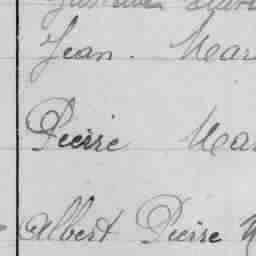 Jean. Mar
Pierre Mar
Albert Pierre M